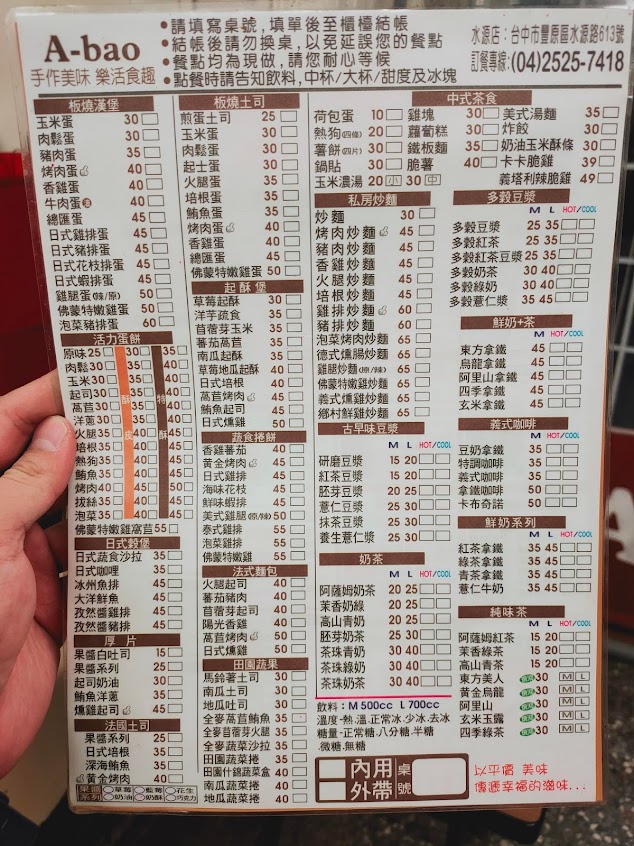 A-bao
手作美味 樂活食趣
•請填寫桌號，填單後至櫃檯結帳
•結帳後請勿換桌，以免延誤您的餐點
•餐點均為現做，請您耐心等候
•點餐時請告知飲料，中杯/大杯/甜度及冰塊
水源店：台中市豐原區水源路613號
訂餐專線：(04)2525-7418
板燒漢堡
玉米蛋 30
肉鬆蛋 30
豬肉蛋 35
烤肉蛋 40
香雞蛋 40
牛肉蛋 40
總匯蛋 45
日式雞排蛋 45
日式豬排蛋 45
日式花枝排蛋 45
日式蝦排蛋 45
雞腿蛋(辣/原) 50
佛蒙特嫩雞蛋 50
泡菜豬排蛋 60
活力蛋餅
酥皮
特酥
原味 25 30 35
肉鬆 30 35 40
玉米 30 35 40
起司 30 35 40
萵苣 30 35 40
洋蔥 30 35 40
火腿 35 40 45
培根 35 40 45
熱狗 35 40 45
鮪魚 35 40 45
烤肉 40 45 50
拔絲 35 40 45
泡菜 35 40 45
佛蒙特嫩雞窩苣 55
日式穀堡
日式蔬食沙拉 35
日式咖哩 35
冰州魚排 45
大洋鮮魚 45
孜然醬雞排 45
孜然醬豬排 45
厚片
果醬白吐司 15
果醬系列 25
起司奶油 30
鮪魚洋蔥 35
燻雞起司 40
法國土司
果醬系列 25
日式培根 35
深海鮪魚 35
黃金烤肉 40
果醬系列 草莓 藍莓 花生
奶油 奶酥 巧克力
板燒土司
煎蛋土司 25
玉米蛋 30
肉鬆蛋 30
起士蛋 30
火腿蛋 35
培根蛋 35
鮪魚蛋 35
烤肉蛋 40
香雞蛋 40
總匯蛋 45
佛蒙特嫩雞蛋 50
起酥堡
草莓起酥 30
洋芋疏食 35
苜蓿芽玉米 35
蕃茄萵苣 35
南瓜起酥 35
草莓地瓜起酥 40
日式培根 40
萵苣烤肉 45
鮪魚起司 45
日式燻雞 50
蔬食捲餅
香雞蕃茄 40
黃金烤肉 45
日式燻雞 45
海味花枝 45
鮮味蝦排 45
美式雞腿(原/辣) 50
泰式雞排 55
泡菜雞排 55
日式燻雞 55
法式麵包
火腿起司 40
蕃茄豬肉 40
苜蓿芽起司 40
陽光香雞 40
萵苣烤肉 50
日式燻雞 50
田園蔬果
馬鈴薯土司 30
南瓜土司 30
地瓜吐司 30
全麥萵苣鮪魚 35
全麥苜蓿芽火腿 35
全麥蔬菜沙拉 35
田園蔬菜捲 35
田園什錦蔬菜盒 40
南瓜蔬菜捲 40
地瓜蔬菜捲 40
中式茶食
荷包蛋 10
熱狗(四條) 20
薯餅(四片) 30
鍋貼 30
玉米濃湯 20 小 30 中
雞塊 30
蘿蔔糕 30
鐵板麵 35
脆薯 40
美式湯麵 35
炸餃 30
奶油玉米酥條 30
卡卡脆雞 39
義塔利辣脆雞 49
私房炒麵
炒麵 30
烤肉炒麵 45
豬肉炒麵 45
香雞炒麵 45
火腿炒麵 45
培根炒麵 45
雞排炒麵 60
豬排炒麵 60
德式燻腸炒麵 65
雞腿炒麵(原/辣) 65
佛蒙特嫩雞炒麵 65
義式燻雞炒麵 65
鄉村鮮雞炒麵 65
古早味豆漿
M L HOT/COOL
研磨豆漿 15 20
紅茶豆漿 15 20
胚芽豆漿 20 25
薏仁豆漿 25 30
抹茶豆漿 25 30
養生薏仁漿 25 30
奶茶
M L HOT/COOL
阿薩姆奶茶 20 25
茉香奶綠 20 25
高山青奶 20 25
胚芽奶茶 25 30
茶珠青奶 30 40
茶珠綠奶 30 40
茶珠奶茶 30 40
飲料：M 500cc L 700cc
溫度-熱.溫.正常冰.少冰.去冰
糖量-正常糖.八分糖.半糖
.微糖.無糖
內用
外帶
桌號
多穀豆漿
M L HOT/COOL
多穀豆漿 25 35
多穀紅茶 25 35
多穀紅茶豆漿 25 35
多穀奶茶 30 40
多穀綠奶 30 40
多穀薏仁漿 35 45
鮮奶+茶
M HOT/COOL
東方拿鐵 45
烏龍拿鐵 45
阿里山拿鐵 45
四季拿鐵 45
玄米拿鐵 45
義式咖啡
M HOT/COOL
豆奶拿鐵 35
特調咖啡 35
義式咖啡 35
拿鐵咖啡 50
卡布奇諾 50
鮮奶系列
M L HOT/COOL
紅茶拿鐵 35 45
綠茶拿鐵 35 45
青茶拿鐵 35 45
薏仁牛奶 35 45
純味茶
M L HOT/COOL
阿薩姆紅茶 15 20
茉香綠茶 15 20
高山青茶 15 20
東方美人 30 M L
黃金烏龍 30 M L
阿里山 30 M L
玄米玉露 30 M L
四季綠茶 30 M L
以平價 美味
傳遞幸福的滋味...